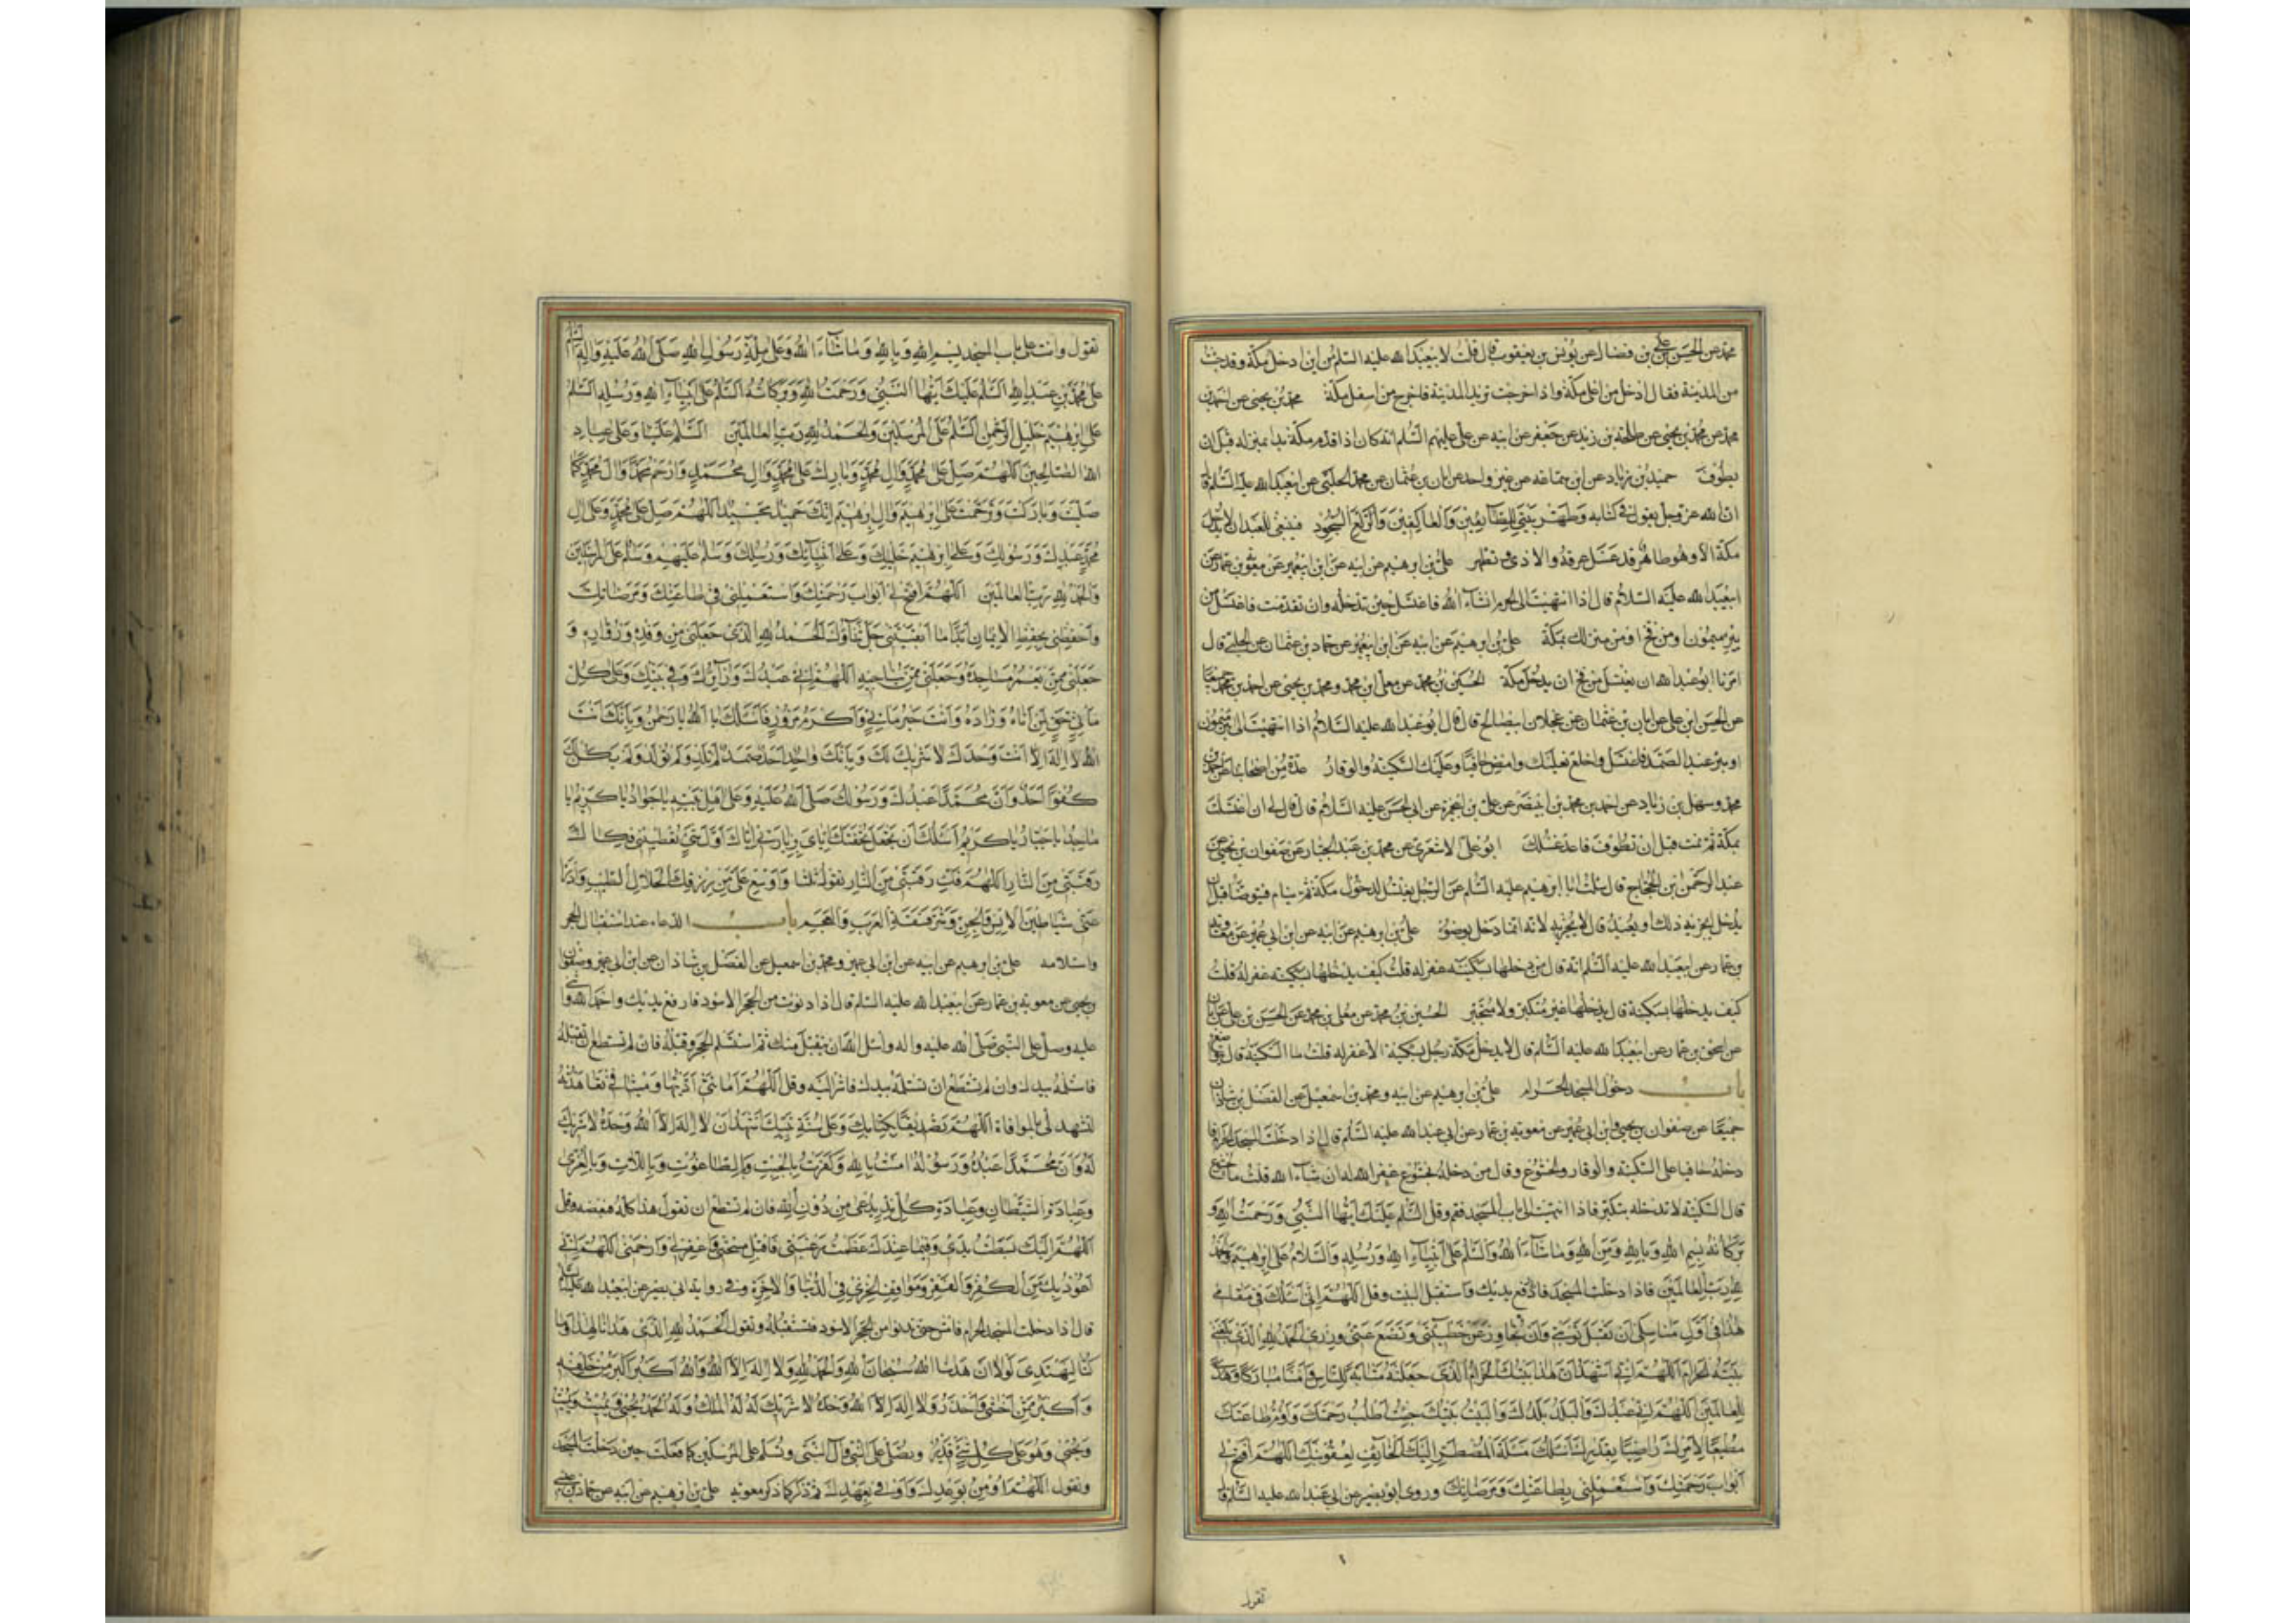 محمد عن الحسن بن علي بن فضال عن يونس بن يعقوب قال قلت لابيعبدالله عليه السلم من اين ادخل مكة وقد جئت
من المدينة فقال ادخل من اعلى مكة واذا خرجت تريد المدينة فاخرج من اسفل مكة محمد بن يحيى عن احمد بن
محمد عن محمد بن يحيى عن طلحة بن زيد عن جعفر عن ابيه عن علي عليهم السلم انه كان اذا قدم مكة بدا بمنزله قبل ان
يطوف حميد بن زياد عن ابن سماعه عن غير واحد عن ابان بن عثمان عن محمد الحلبي عن ابيعبدالله عليه السلم قا
ان الله عز وجل يقول في كتابه وطهر بيتي للطائفين والعاكفين والركع السجود فينبغي للعبد ان لا يدخل
مكة الا وهو طاهر قد غسل عرقه والاذى وتطهر علي بن ابرهيم عن ابيه عن ابن ابيعمير عن معوية بن عمار عن
ابيعبدالله عليه السلام قال اذا انتهيت الى الحرم انشاء الله فاغتسل حين تدخله وان تقدمت فاغتسل من
بئر ميمون او من فخ او من منزلك بمكة علي بن ابرهيم عن ابيه عن ابن ابيعمير عن حماد بن عثمان عن الحلبي قال
امرنا ابوعبدالله ان نغتسل من فخ ان يدخل مكة الحسين بن محمد عن معلى ابن محمد ومحمد بن يحيى عن احمد بن محمد جميعا
عن الحسن ابن علي عن ابان بن عثمان عن عجلان ابيصالح قال قال ابوعبدالله عليه السلام اذا انتهيت الى بئر ميمون
او بئر عبدالصمد فاغتسل واخلع نعليك وامض حافيا وعليك السكينة والوقار عدة من اصحابنا عن احمد بن
محمد وسهل بن زياد عن احمد بن محمد بن ابينصر عن علي بن ابيحمزة عن ابي الحسن عليه السلام قال قال لي ان اغتسلت
بمكة ثم نمت قبل ان تطوف فاعد غسلك ابوعلي الاشعري عن محمد بن عبدالجبار عن صفوان بن يحيى عن
عبدالرحمن ابن الحجاج قال سئلت ابا ابرهيم عليه السلم عن الرجل يغتسل لدخول مكة ثم ينام فيتوضا قبل ان
يدخل ايجزيه ذلك او يعيد قال لا يجزيه لانه انما دخل بوضوء علي بن ابرهيم عن ابيه عن ابن ابي عمير عن معوية
بن عمار عن ابيعبدالله عليه السلم انه قال من دخلها بسكينة غفر له قلت كيف يدخلها بسكينه غفر له قلت
كيف يدخلها بسكينة قال يدخلها غير متكبر ولا متجبر الحسين بن محمد عن معلى بن محمد عن الحسن بن علي عن ابان
عن اسحق بن عمار عن ابيعبدالله عليه السلم قال لا يدخل مكة رجل بسكينة الا غفر له قلت ما السكينة قال يتواضع
باب دخول المسجد الحرام علي بن ابرهيم عن ابيه ومحمد بن اسمعيل عن الفضل بن شاذان
جميعا عن صفوان بن يحيى وابن ابي عمير عن معوية بن عمار عن ابي عبدالله عليه السلم قال اذا دخلت المسجد الحرام فا
دخله حافيا على السكينة والوقار والخشوع وقال من دخله بخشوع غفر الله له ان شاء الله قلت ما الخشوع
قال السكينة لا تدخله بتكبر فاذا انتهيت الى باب المسجد فقم وقل السلم عليك ايها النبي ورحمت الله و
بركاته بسم الله وبالله ومن الله وما شاء الله والسلم على انبياء الله ورسله والسلام على ابرهيم والحمد
لله رب العالمين فاذا دخلت المسجد فارفع يديك واستقبل البيت وقل اللهم اني اسئلك في مقامي
هذا في اول مناسكي ان تقبل توبتي وان تجاوز عن خطيئتي وتضع عني وزري الحمد لله الذي بلغني
بيته الحرام اللهم اني اشهد ان هذا بيتك الحرام الذي جعلته مثابة للناس وامنا مباركا وهدى
للعالمين اللهم اني عبدك والبلد بلدك والبيت بيتك جئت اطلب رحمتك واؤم طاعتك
مطيعا لامرك راضيا بقدرك اسئلك مسئلة المضطر اليك الخائف لعقوبتك اللهم افتح لي
ابواب رحمتك واستعملني بطاعتك ومرضاتك وروى ابوبصير عن ابي عبدالله عليه السلم قا
تقول
تقول وانت على باب المسجد بسم الله وبالله وما شاء الله وعلى ملة رسول الله صلى الله عليه واله السلم
على محمد بن عبدالله السلم عليك ايها النبي ورحمت الله وبركاته السلم على انبياء الله ورسله السلم
على ابرهيم خليل الرحمن السلم على المرسلين والحمد لله رب العالمين السلم علينا وعلى عباد
الله الصالحين اللهم صل على محمد وال محمد وبارك على محمد وال محمد وارحم محمدا وال محمد كما
صليت وباركت وترحمت على ابرهيم وال ابرهيم انك حميد مجيد اللهم صل على محمد وعلى ال
محمد عبدك ورسولك وعلى ابرهيم خليلك وعلى انبيائك ورسلك وسلم عليهم وسلم على المرسلين
والحمد لله رب العالمين اللهم افتح لي ابواب رحمتك واستعملني في طاعتك ومرضاتك
واحفظني بحفظ الايمان ابدا ما ابقيتني جل ثناؤك الحمد لله الذي جعلني من وفده وزواره و
جعلني ممن يعمر مساجده وجعلني ممن يناجيه اللهم اني عبدك وزائرك وفي بيتك وعلى كل
ماتي حق لمن اتاه وزاره وانت خير ماتي واكرم مزور فاسئلك يا الله يا رحمن وبانك انت
الله لا اله الا انت وحدك لا شريك لك وبانك واحد احد صمد لم تلد ولم تولد ولم يكن لك
كفوا احد وان محمدا عبدك ورسولك صلى الله عليه وعلى اهل بيته يا جواد يا كريم يا
ماجد يا جبار يا كريم اسئلك ان تجعل تحفتك اياي بزيارتي اياك اول شئ تعطيني فكاك
رقبتي من النار اللهم فك رقبتي من النار تقولها ثلثا واوسع علي من رزقك الحلال الطيب وادرا
عني شياطين الانس والجن وشر فسقة العرب والعجم باب الدعاء عند استقبال الحجر
واستلامه علي بن ابرهيم عن ابيه عن ابن ابي عمير ومحمد بن اسمعيل عن الفضل بن شاذان عن ابن ابي عمير وصفوان
بن يحيى عن معوية بن عمار عن ابيعبدالله عليه السلم قال اذا دنوت من الحجر الاسود فارفع يديك واحمد الله واثن
عليه وصل على النبي صلى الله عليه واله واسئل الله ان يتقبل منك ثم استلم الحجر وقبله فان لم تستطع ان تقبله
فاستلمه بيدك وان لم تستطع ان تستلمه بيدك فاشر اليه وقل اللهم امانتي اديتها وميثاقي تعاهدته
لتشهد لي بالموافاة اللهم تصديقا بكتابك وعلى سنة نبيك اشهد ان لا اله الا الله وحده لا شريك
له وان محمدا عبده ورسوله امنت بالله وكفرت بالجبت والطاغوت وباللات وبالعزى
وعبادة الشيطان وعبادة كل ند يدعى من دون الله فان لم تستطع ان تقول هذا كله فبعضه وقل
اللهم اليك بسطت يدي وفيما عندك عظمت رغبتي فاقبل سبحتي واغفر لي وارحمني اللهم اني
اعوذ بك من الكفر والفقر ومواقف الخزي في الدنيا والاخرة وفي رواية ابي بصير عن ابيعبدالله عليه السلم
قال اذا دخلت المسجد الحرام فامش حتى تدنوا من الحجر الاسود فتستقبله وتقول الحمد لله الذي هدانا لهذا وما
كنا لنهتدي لولا ان هدينا الله سبحان الله والحمد لله ولا اله الا الله والله اكبر اكبر من خلقه
واكبر ممن اخشى واحذر ولا اله الا الله وحده لا شريك له له الملك وله الحمد يحيي ويميت ويميت
ويحيي وهو على كل شئ قدير وتصلي على النبي وآل النبي وتسلم على المرسلين كما فعلت حين دخلت المسجد
وتقول اللهم اومن بوعدك واوفي بعهدك ثم ذكر كما ذكر معوية علي بن ابرهيم عن ابيه عن حماد بن عيسى